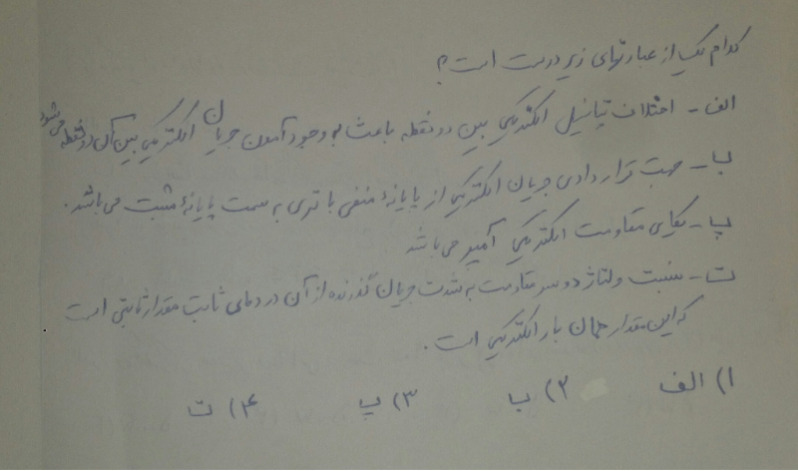 کدام یک از عبارتهای زیر درست است؟
الف - اختلاف پتانسیل الکتریکی بین دو نقطه باعث به وجود آمدن جریان الکتریکی بین آن دو نقطه می شود
ب - جهت قراردادی جریان الکتریکی از پایانهٔ منفی باتری به سمت پایانهٔ مثبت می باشد.
پ - یکای مقاومت الکتریکی آمپر می باشد
ت - نسبت ولتاژ دو سر مقاومت به شدت جریان گذرنده از آن در دمای ثابت مقدار ثابتی است
که این مقدار همان بار الکتریکی است.
۱) الف ۲) ب ۳) پ ۴) ت